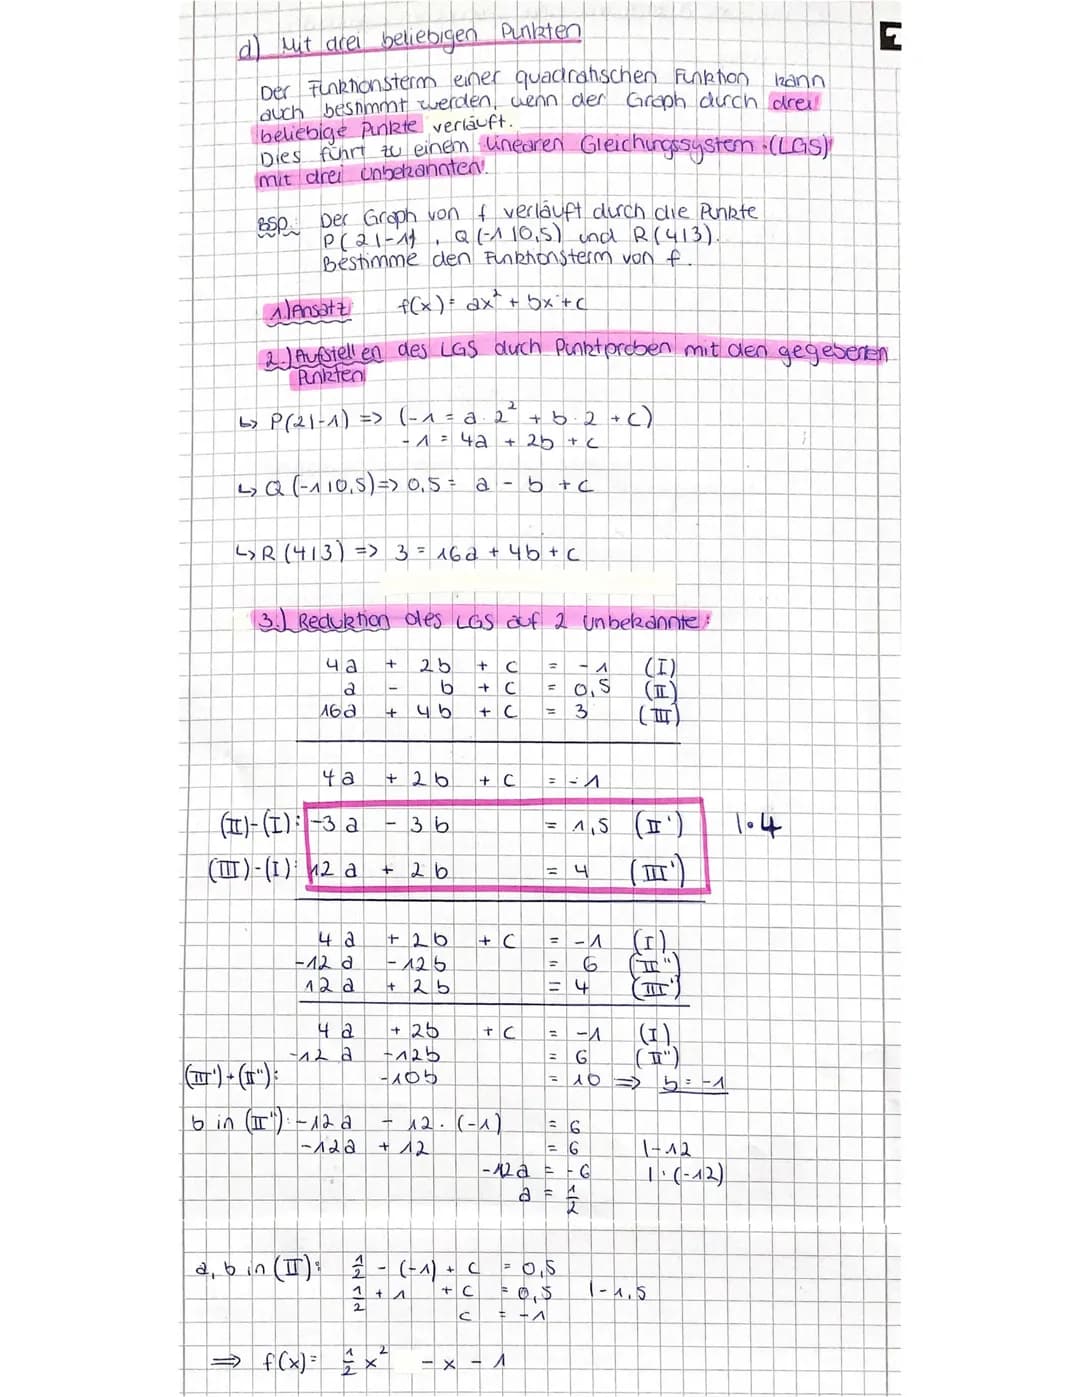 d) Mit drei beliebigen Punkten
Der Funktionsterm einer quadratischen Funktion kann
auch bestimmt werden, wenn der Graph durch drei
beliebige Punkte verläuft.
Dies führt zu einem linearen Gleichungssystem (LGS)
mit drei Unbekannten.
BSP: Der Graph von f verläuft durch die Punkte
P(2|-1), Q(-1|0,5) und R(4|3).
Bestimme den Funktionsterm von f.
1.) Ansatz f(x) = ax² + bx + c
2.) Aufstellen des LGS durch Punktproben mit den gegebenen
Punkten
↳ P(2|-1) => (-1 = a · 2² + b · 2 + c)
-1 = 4a + 2b + c
↳ Q(-1|0,5) => 0,5 = a - b + c
↳ R(4|3) => 3 = 16a + 4b + c
3.) Reduktion des LGS auf 2 Unbekannte:
4a + 2b + c = -1 (I)
a - b + c = 0,5 (II)
16a + 4b + c = 3 (III)
4a + 2b + c = -1
(II)-(I): -3a - 3b = 1,5 (II') |·4
(III)-(I): 12a + 2b = 4 (III')
4a + 2b + c = -1 (I)
-12a - 12b = 6 (II'')
12a + 2b = 4 (III')
4a + 2b + c = -1 (I)
-12a - 12b = 6 (II'')
(III')+(II''): -10b = 10 => b = -1
b in (II''): -12a - 12 · (-1) = 6
-12a + 12 = 6 |-12
-12a = -6 |:(-12)
a = 1/2
a, b in (II): 1/2 - (-1) + c = 0,5
1/2 + 1 + c = 0,5 |-1,5
c = -1
=> f(x) = 1/2 x² - x - 1